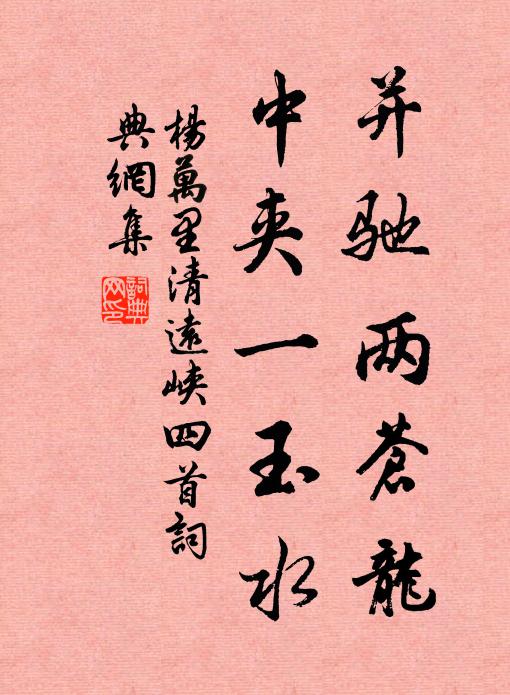 并驰两苍龙
中夹一玉水
杨萬里清遠峽四首詞
典網集
詞典
网印